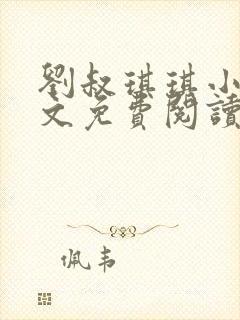 劉叔琪琪小
文免費閱讀
佩韦